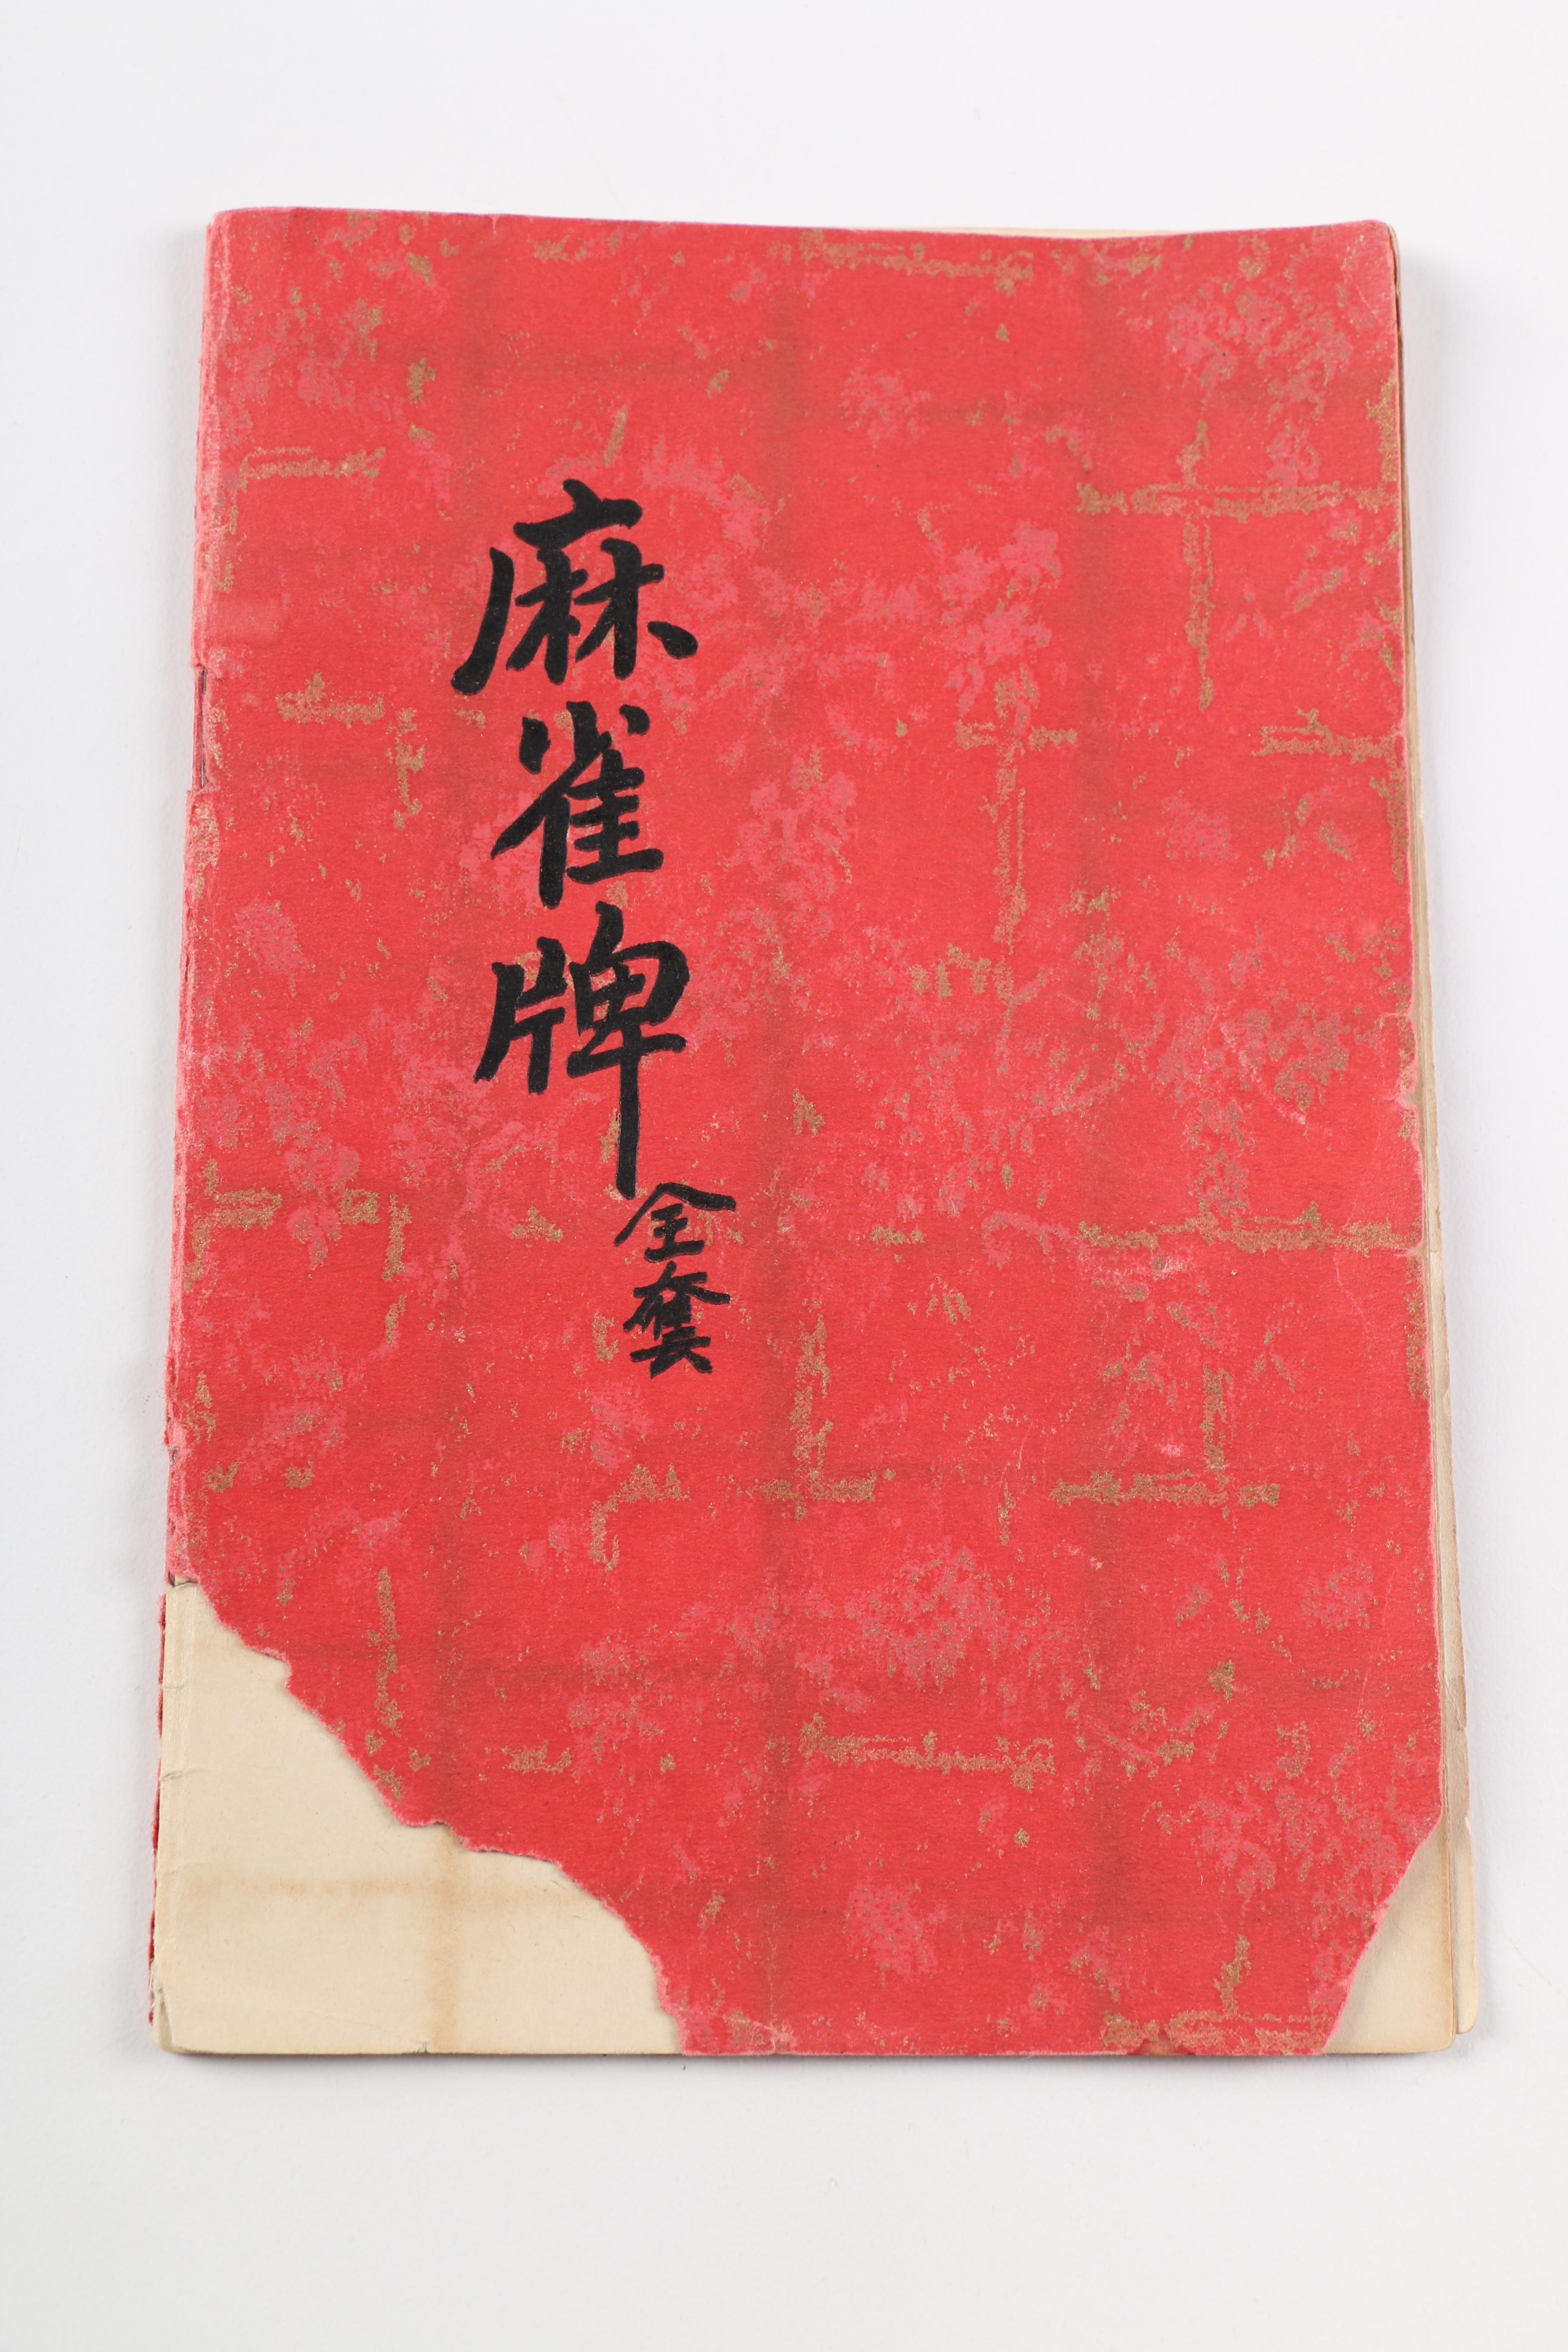 麻雀牌
全